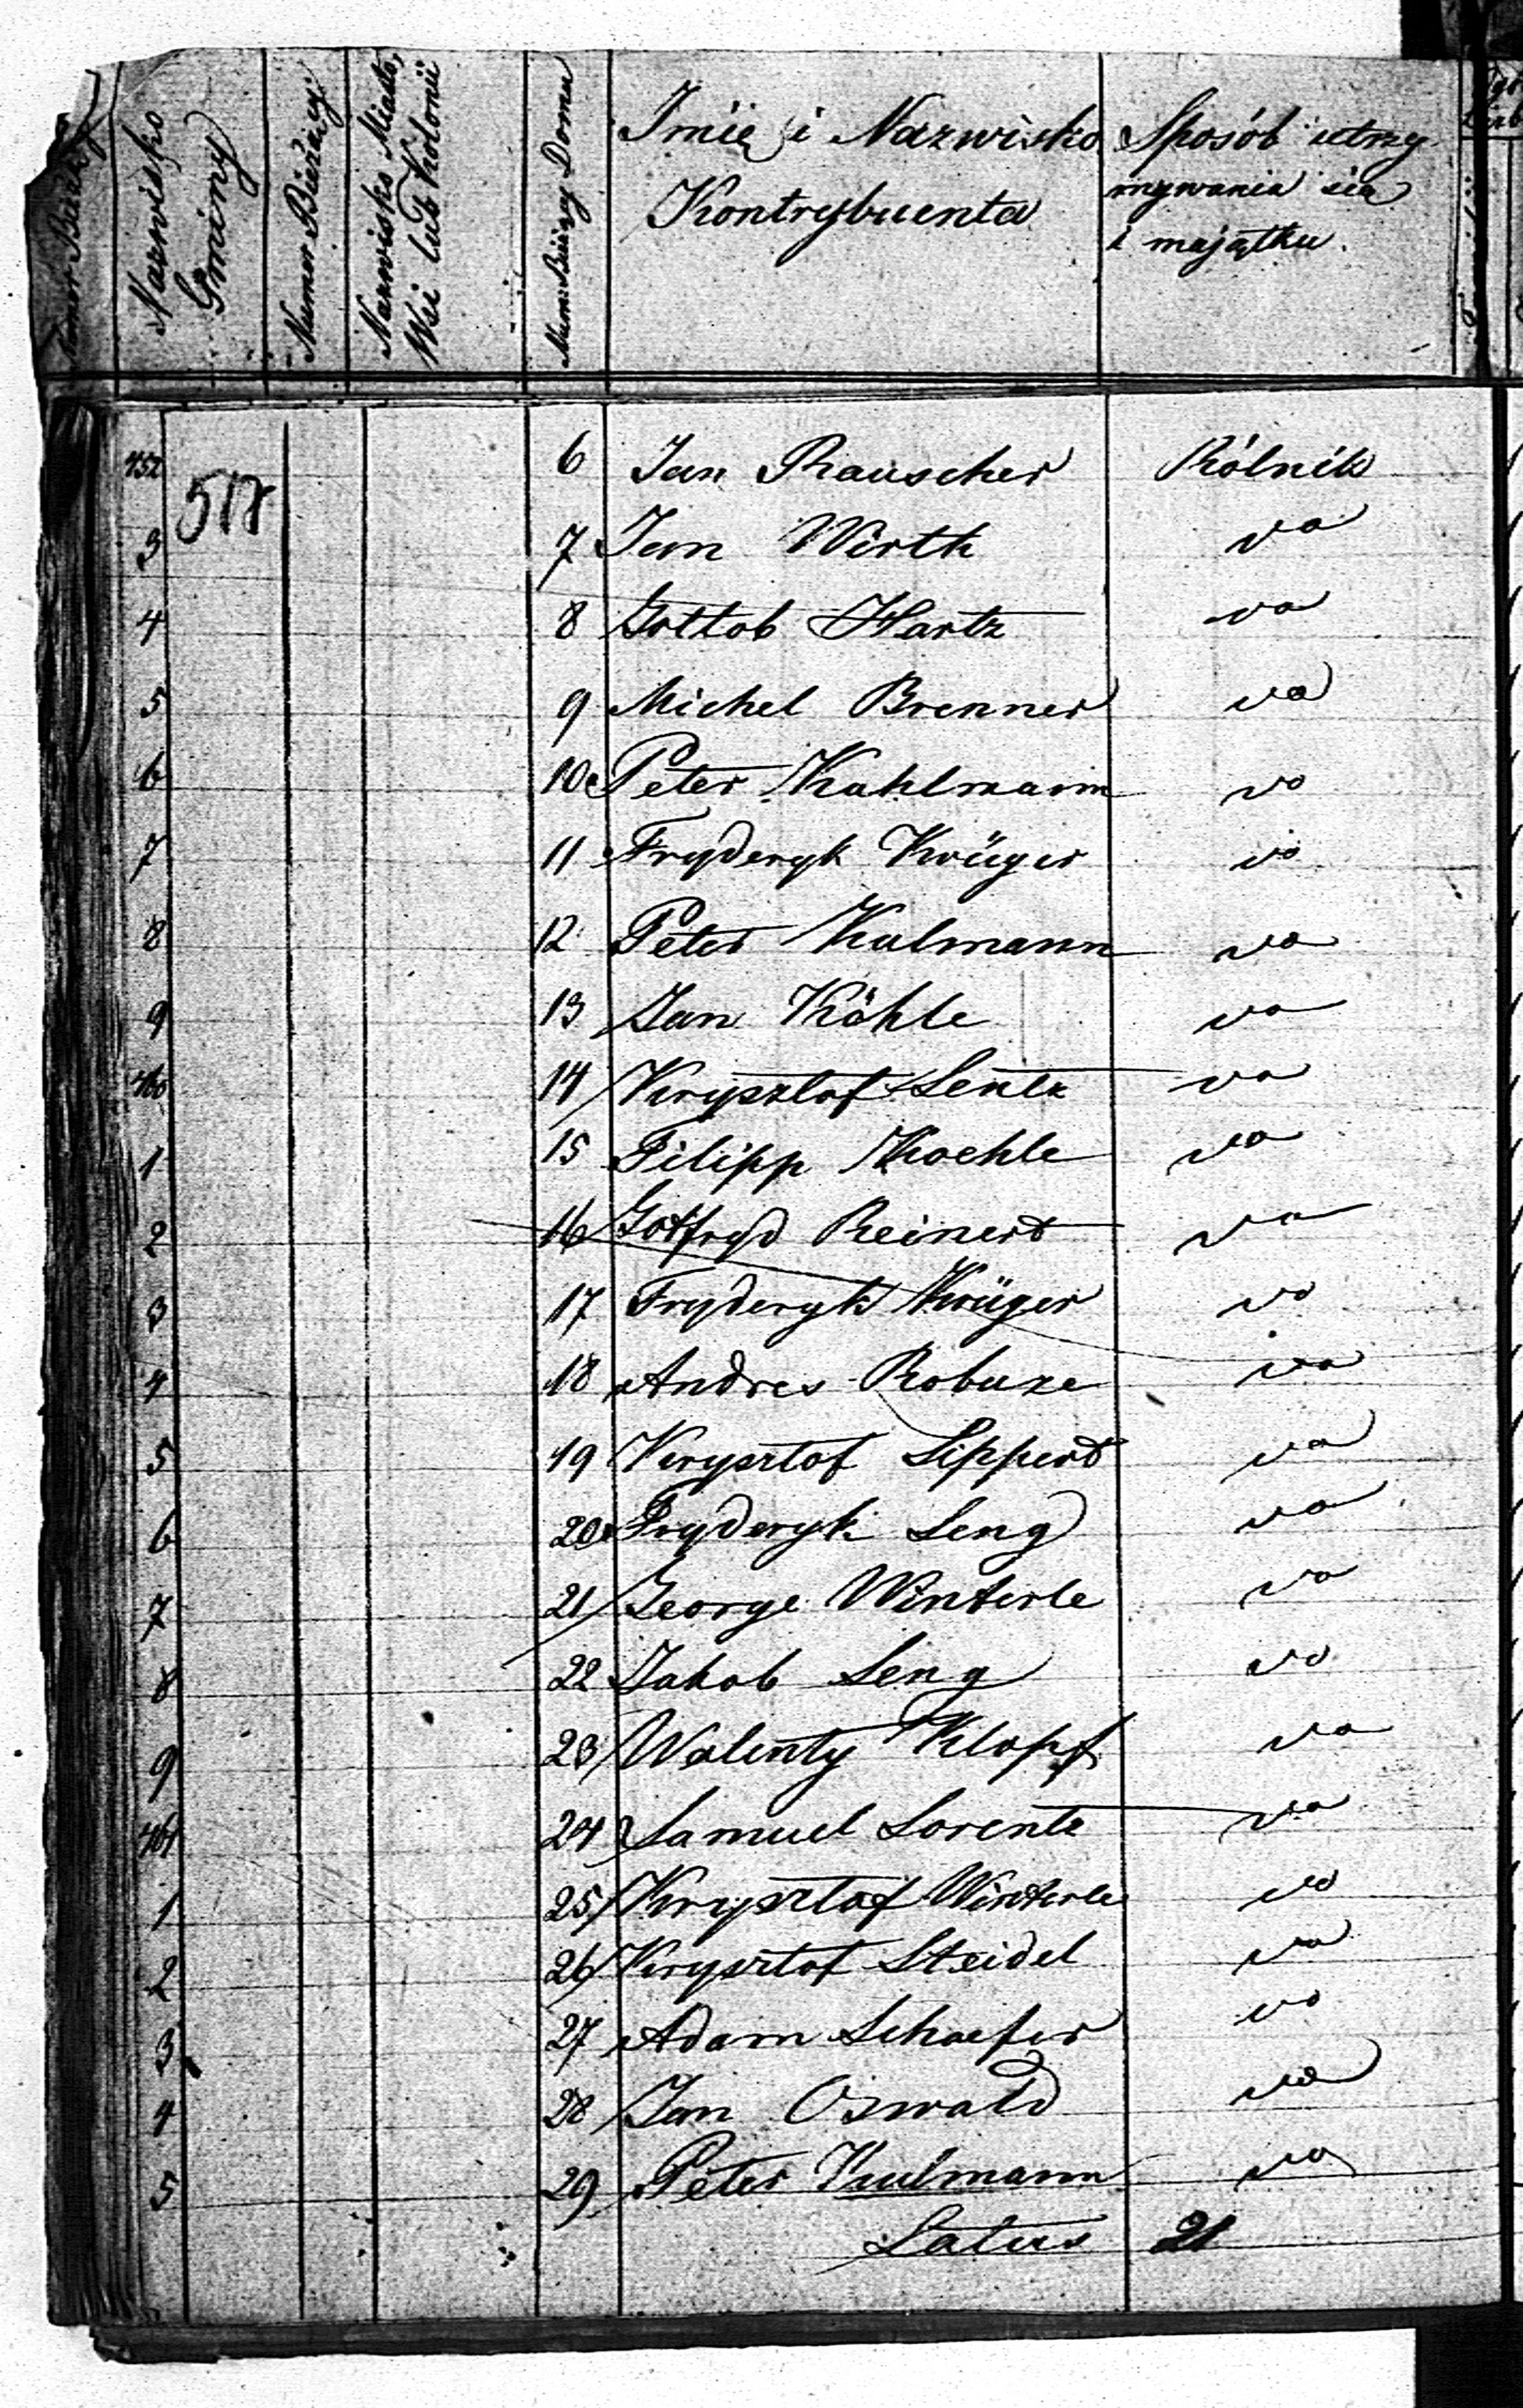 Numer Bieżący
Nazwisko Gminy
Numer Bieżący
Nazwisko Miasta, Wsi lub Kolonii
Num: Bieżący Domu
Imię i Nazwisko Kontrybuenta
Sposób utrzymywania się i majątku.
517
452 6 Jan Rauscher Rólnik
3 7 Jan Wirth vo
4 8 Gottob Hartz vo
5 9 Michel Brenner vo
6 10 Peter Kuhlmann vo
7 11 Fryderyk Krüger vo
8 12 Peter Kulmann vo
9 13 Jan Köhle vo
460 14 Krysztof Lentz vo
1 15 Filipp Koehle vo
2 16 Gottfryd Reinert vo
3 17 Fryderyk Krüger vo
4 18 Andres Robuze vo
5 19 Krysztof Lippert vo
6 20 Fryderyk Leng vo
7 21 George Winterle vo
8 22 Jakob Leng vo
9 23 Walenty Klopf vo
461 24 Samuel Lorentz vo
1 25 Krysztof Winterle vo
2 26 Krysztof Steidel vo
3 27 Adam Schaefer vo
4 28 Jan Oswald vo
5 29 Peter Kulmann vo
Latus 21